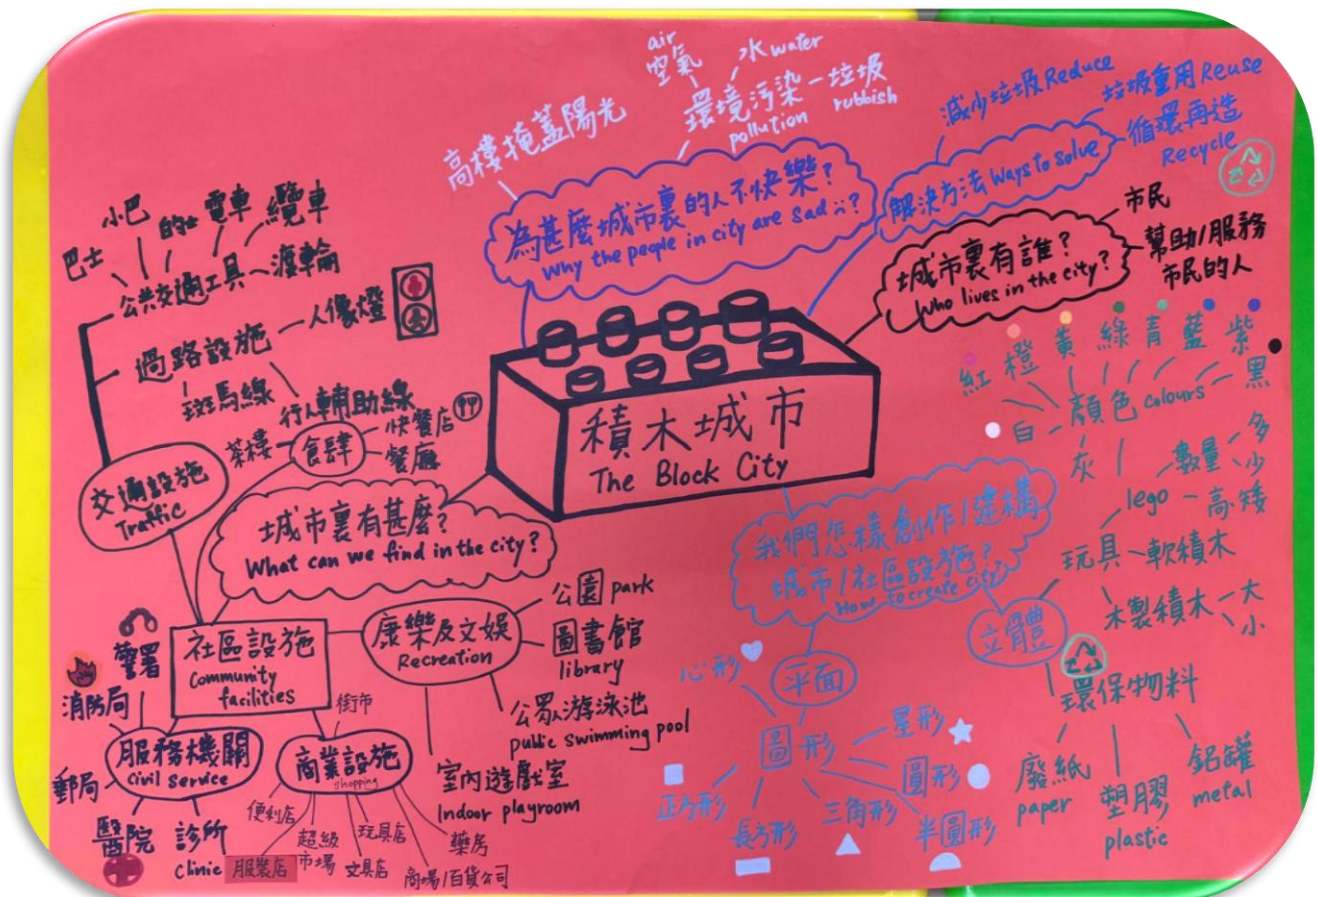 積木城市
The Block City
為甚麼城市裏的人不快樂?
Why the people in city are sad :(?
高樓掩蓋陽光
環境污染
pollution
air
空氣
水 water
垃圾
rubbish
解決方法 Ways to solve
減少垃圾 Reduce
垃圾重用 Reuse
循環再造
Recycle
城市裏有誰?
Who lives in the city?
市民
幫助/服務
市民的人
城市裏有甚麼?
What can we find in the city?
食肆
茶樓
快餐店
餐廳
交通設施
Traffic
公共交通工具
巴士
小巴
的士
電車
纜車
渡輪
過路設施
人像燈
斑馬線
行人輔助線
社區設施
Community
facilities
康樂及文娛
Recreation
公園 park
圖書館
library
公眾游泳池
public swimming pool
室內遊戲室
Indoor playroom
服務機關
Civil Service
警署
消防局
郵局
醫院
診所
Clinic
商業設施
shopping
街市
便利店
服裝店
超級
市場
玩具店
文具店
商場/百貨公司
藥房
我們怎樣創作/建構
城市/社區設施?
How to create city?
平面
圖形
心形
正方形
長方形
三角形
半圓形
圓形
星形
立體
玩具
lego
顏色 colours
白
紅
橙
黃
綠
青
藍
紫
黑
灰
數量
多
少
高矮
軟積木
木製積木
大
小
環保物料
廢紙
paper
塑膠
plastic
鋁罐
metal